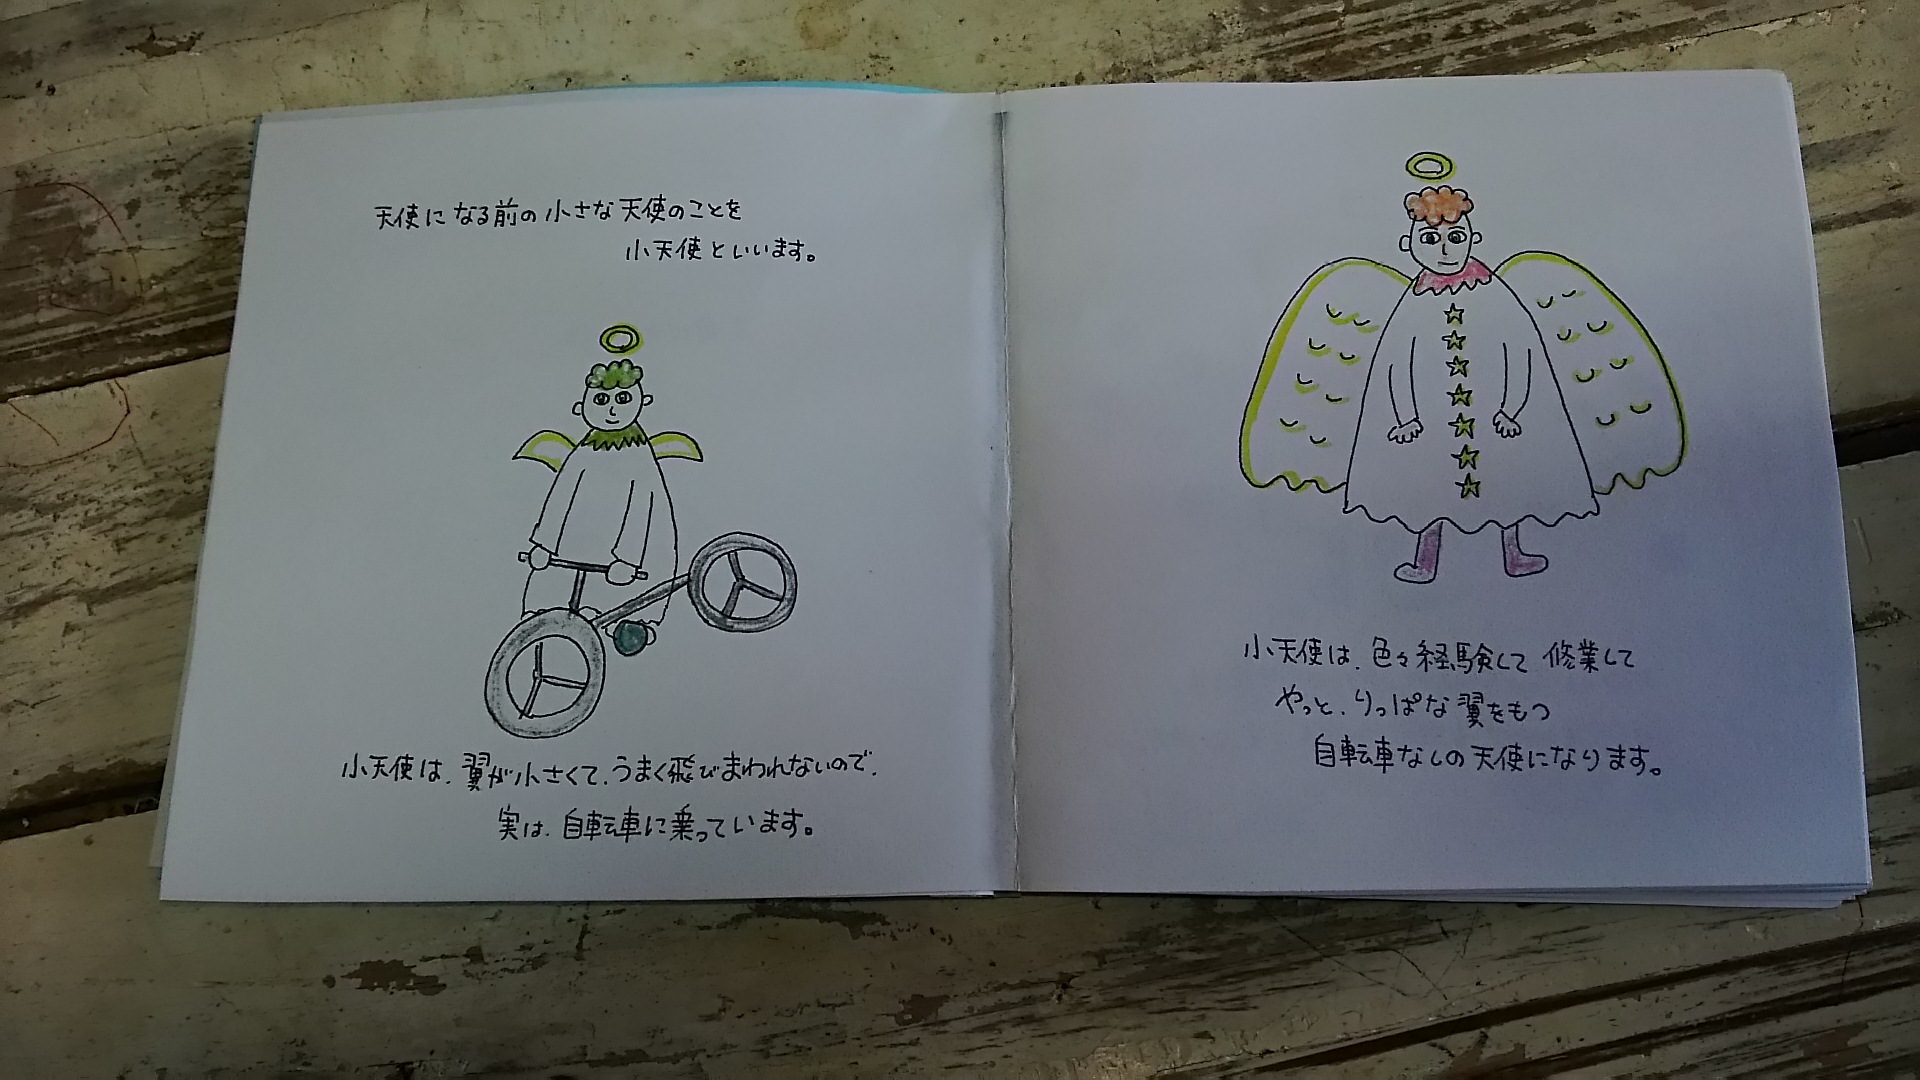 天使になる前の小さな天使のことを
小天使といいます。
小天使は、翼が小さくて、うまく飛びまわれないので、
実は、自転車に乗っています。
小天使は、色々経験して修業して
やっと、りっぱな翼をもつ
自転車なしの天使になります。